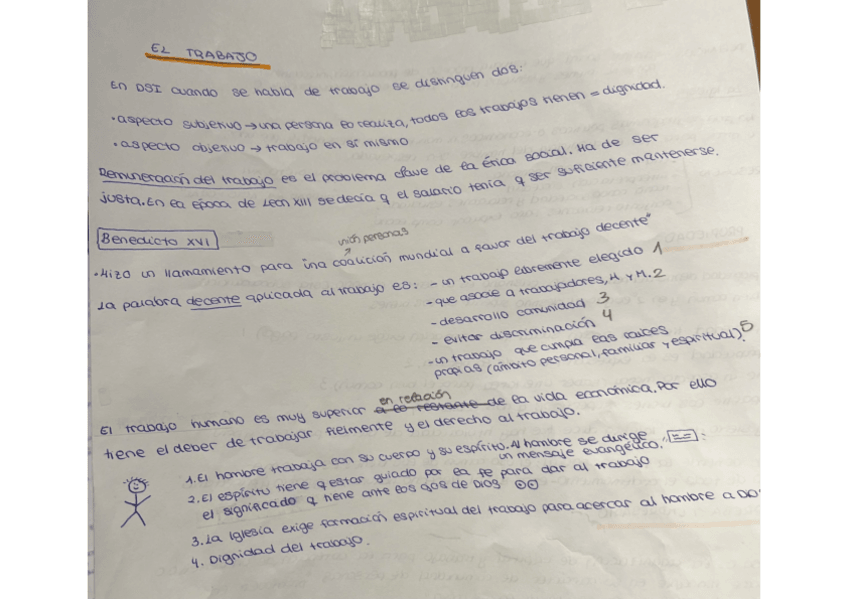 EL TRABAJO
En DSI cuando se habla de trabajo se distinguen dos:
• aspecto subjetivo → una persona lo realiza, todos los trabajos tienen = dignidad.
• aspecto objetivo → trabajo en sí mismo
Remuneración del trabajo es el problema clave de la ética social. Ha de ser
justa. En la época de León XIII se decía q el salario tenía q ser suficiente mantenerse.
Benedicto XVI
unión personas
• Hizo un llamamiento para una coalición mundial a favor del trabajo decente"
La palabra decente aplicada al trabajo es: - un trabajo libremente elegido 1
- que asocie a trabajadores, H y M. 2
- desarrollo comunidad 3
- evitar discriminación 4
- un trabajo que cumpla las raíces
propias (ámbito personal, familiar y espiritual). 5
en relación
El trabajo humano es muy superior a lo restante de la vida económica. Por ello
tiene el deber de trabajar fielmente y el derecho al trabajo.
1. El hombre trabaja con su cuerpo y su espíritu. Al hombre se dirige
un mensaje evangélico. :
2. El espíritu tiene q estar guiado por la fe para dar al trabajo
el significado q tiene ante los ojos de Dios
3. La Iglesia exige formación espiritual del trabajo para acercar al hombre a DO
4. Dignidad del trabajo.